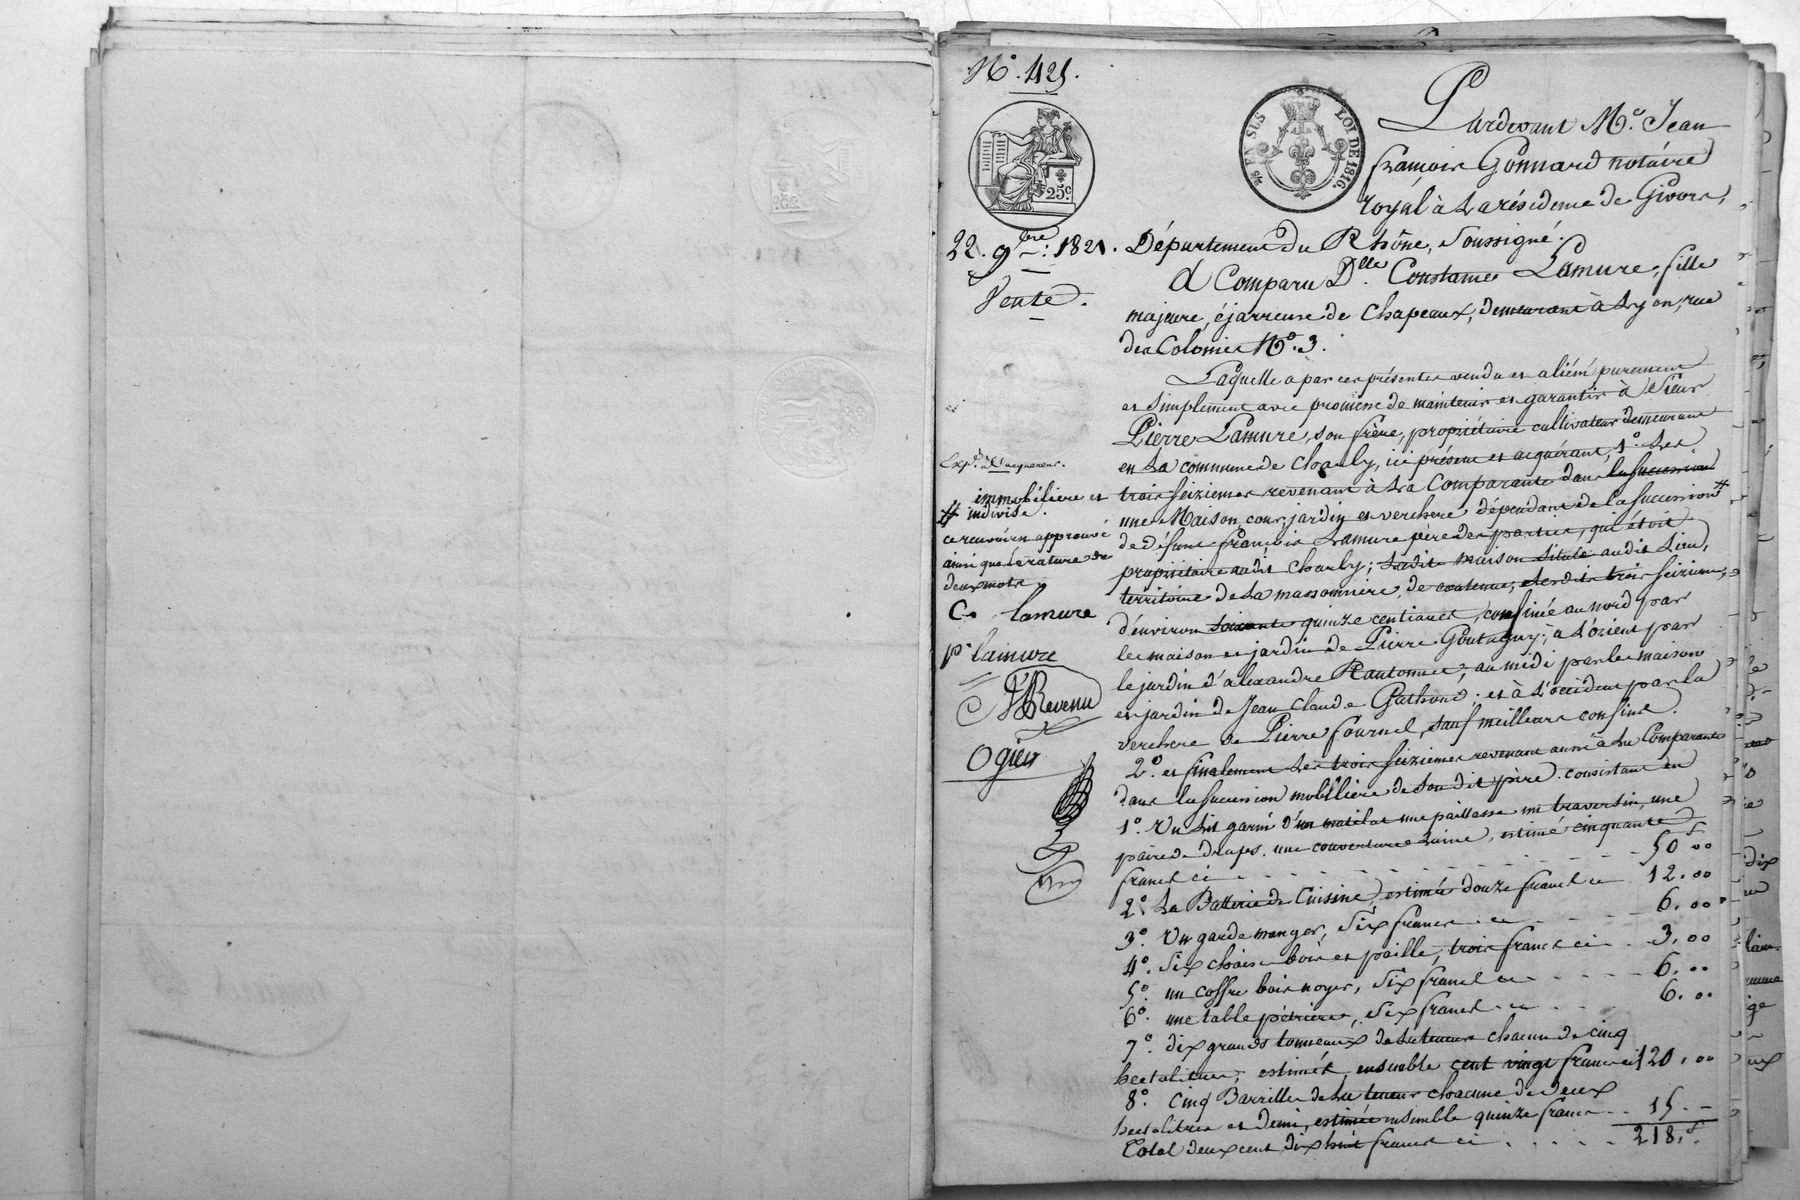 N.º 425.
25.c
94 EN SUS
LOI DE 1816.
Pardevant M.e Jean
françois Gonnard notaire
royal à la résidence de Givors,
22. 9bre: 1821. Département du Rhône, soussigné.
Vente.
A Comparu D.lle Constance Lamure, fille
majeure, éjarreuse de Chapeaux, demeurant à Lyon, rue
des Colonies N.º 3.
Laquelle a par ces présentes vendu et aliéné purement
et simplement avec promesse de maintenir et garantir à Sieur
Pierre Lamure, son frère, propriétaire cultivateur demeurant
en la commune de Charly, ici présent et acquérant, 1.º Les
trois seiziemes revenant à la Comparante dans la succession
une Maison, cour, jardin et verchere dépendant de la succession #
de défunt françois Lamure père des parties, qui étoit
propriétaire audit Charly; ladite maison située audit lieu,
territoire de la massonniere, de contenue, lesdits trois seiziemes,
d'environ soixante quinze centiares, confinée au nord par
les maison et jardin de Pierre Goutagny; à l'orient par
le jardin d'alexandre Rantonnet; au midi par les maison
et jardin de Jean Claude Gathond. et à l'occident par la
verchere de Pierre fournel, sauf meilleurs confins.
2.º et finalement Les trois seiziemes revenant aussi à la Comparante
dans la succession mobiliere de son dit père. consistant en
1.º Un Lit garni d'un matelas une paillasse un traversin, une
paire de draps. une couverture laine, estimé cinquante
francs ci 50 f 00
2.º La Batterie de Cuisine, estimée douze francs ci 12.00
3.º Un garde manger, Six francs. ci 6.00
4.º Six chaises bois et paille, trois francs ci 3.00
5.º un coffre bois noyer, Six francs ci 6.00
6.º une table pétriere, Six francs ci 6.00
7.º dix grands tonneaux de la teneur chacun de cinq
hectolitres, estimés ensemble cent vingt francs ci 120.00
8.º Cinq Barrilles de la teneur chacune de deux
hectolitres et demi, estimées ensemble quinze francs 15.-
Total deux cent dix huit francs ci 218.f
Exp.on à l'acquereur.
# immobiliere et
indivise.
ce renvoi en approuvé
ainsi que la rature de
deux mots
C. lamure
p.re lamure
Revenu
Ogier